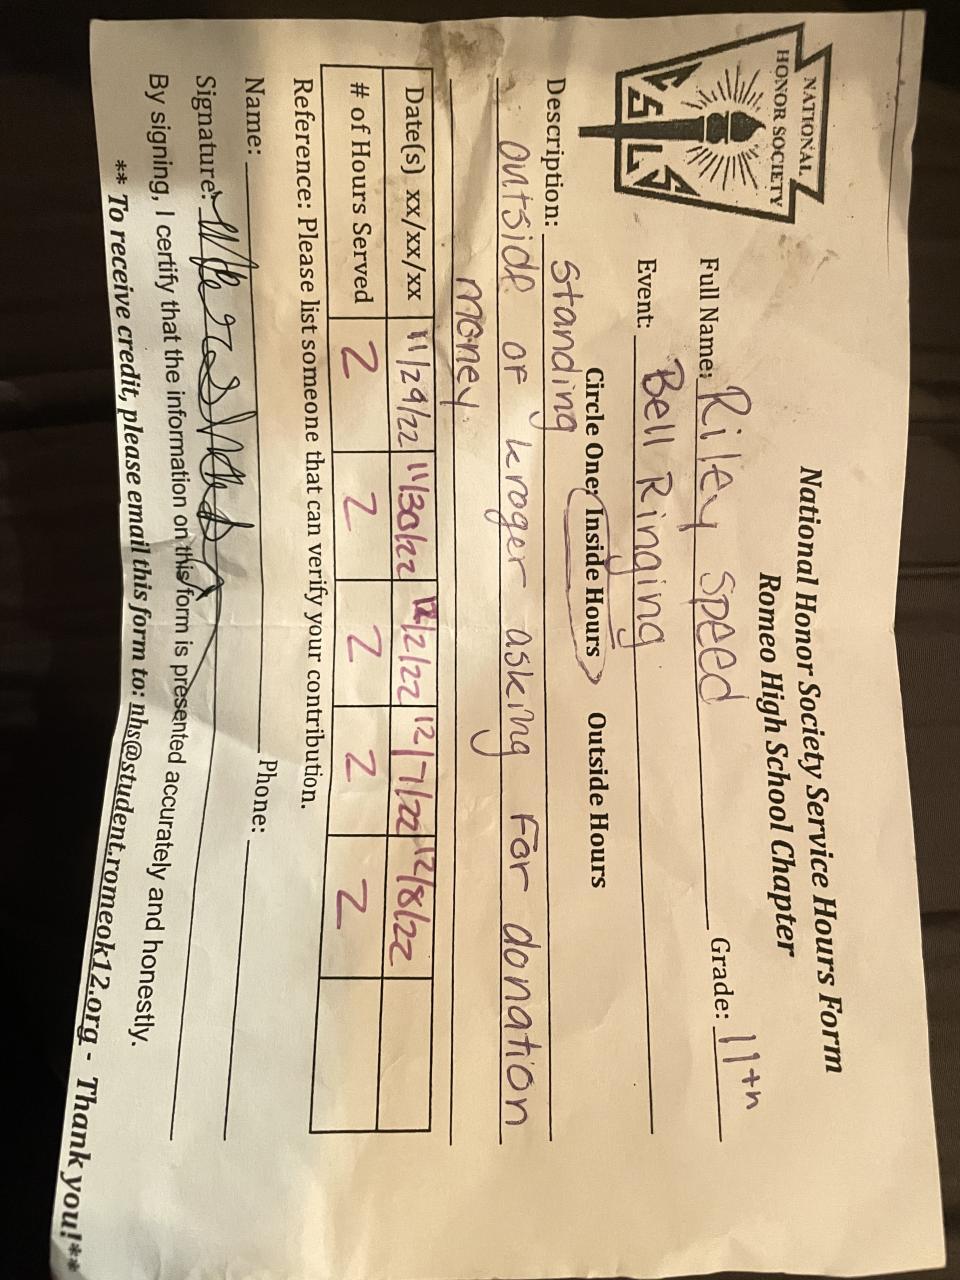 NATIONAL
HONOR SOCIETY
C S L S
National Honor Society Service Hours Form
Romeo High School Chapter
Full Name: Riley Speed Grade: 11th
Event: Bell Ringing
Circle One: Inside Hours Outside Hours
Description: Standing
outside of kroger asking for donation
money
Date(s) xx/xx/xx 11/29/22 11/30/22 12/2/22 12/7/22 12/8/22
# of Hours Served 2 2 2 2 2
Reference: Please list someone that can verify your contribution.
Name: Phone:
Signature:
By signing, I certify that the information on this form is presented accurately and honestly.
** To receive credit, please email this form to: nhs@student.romeok12.org - Thank you!**